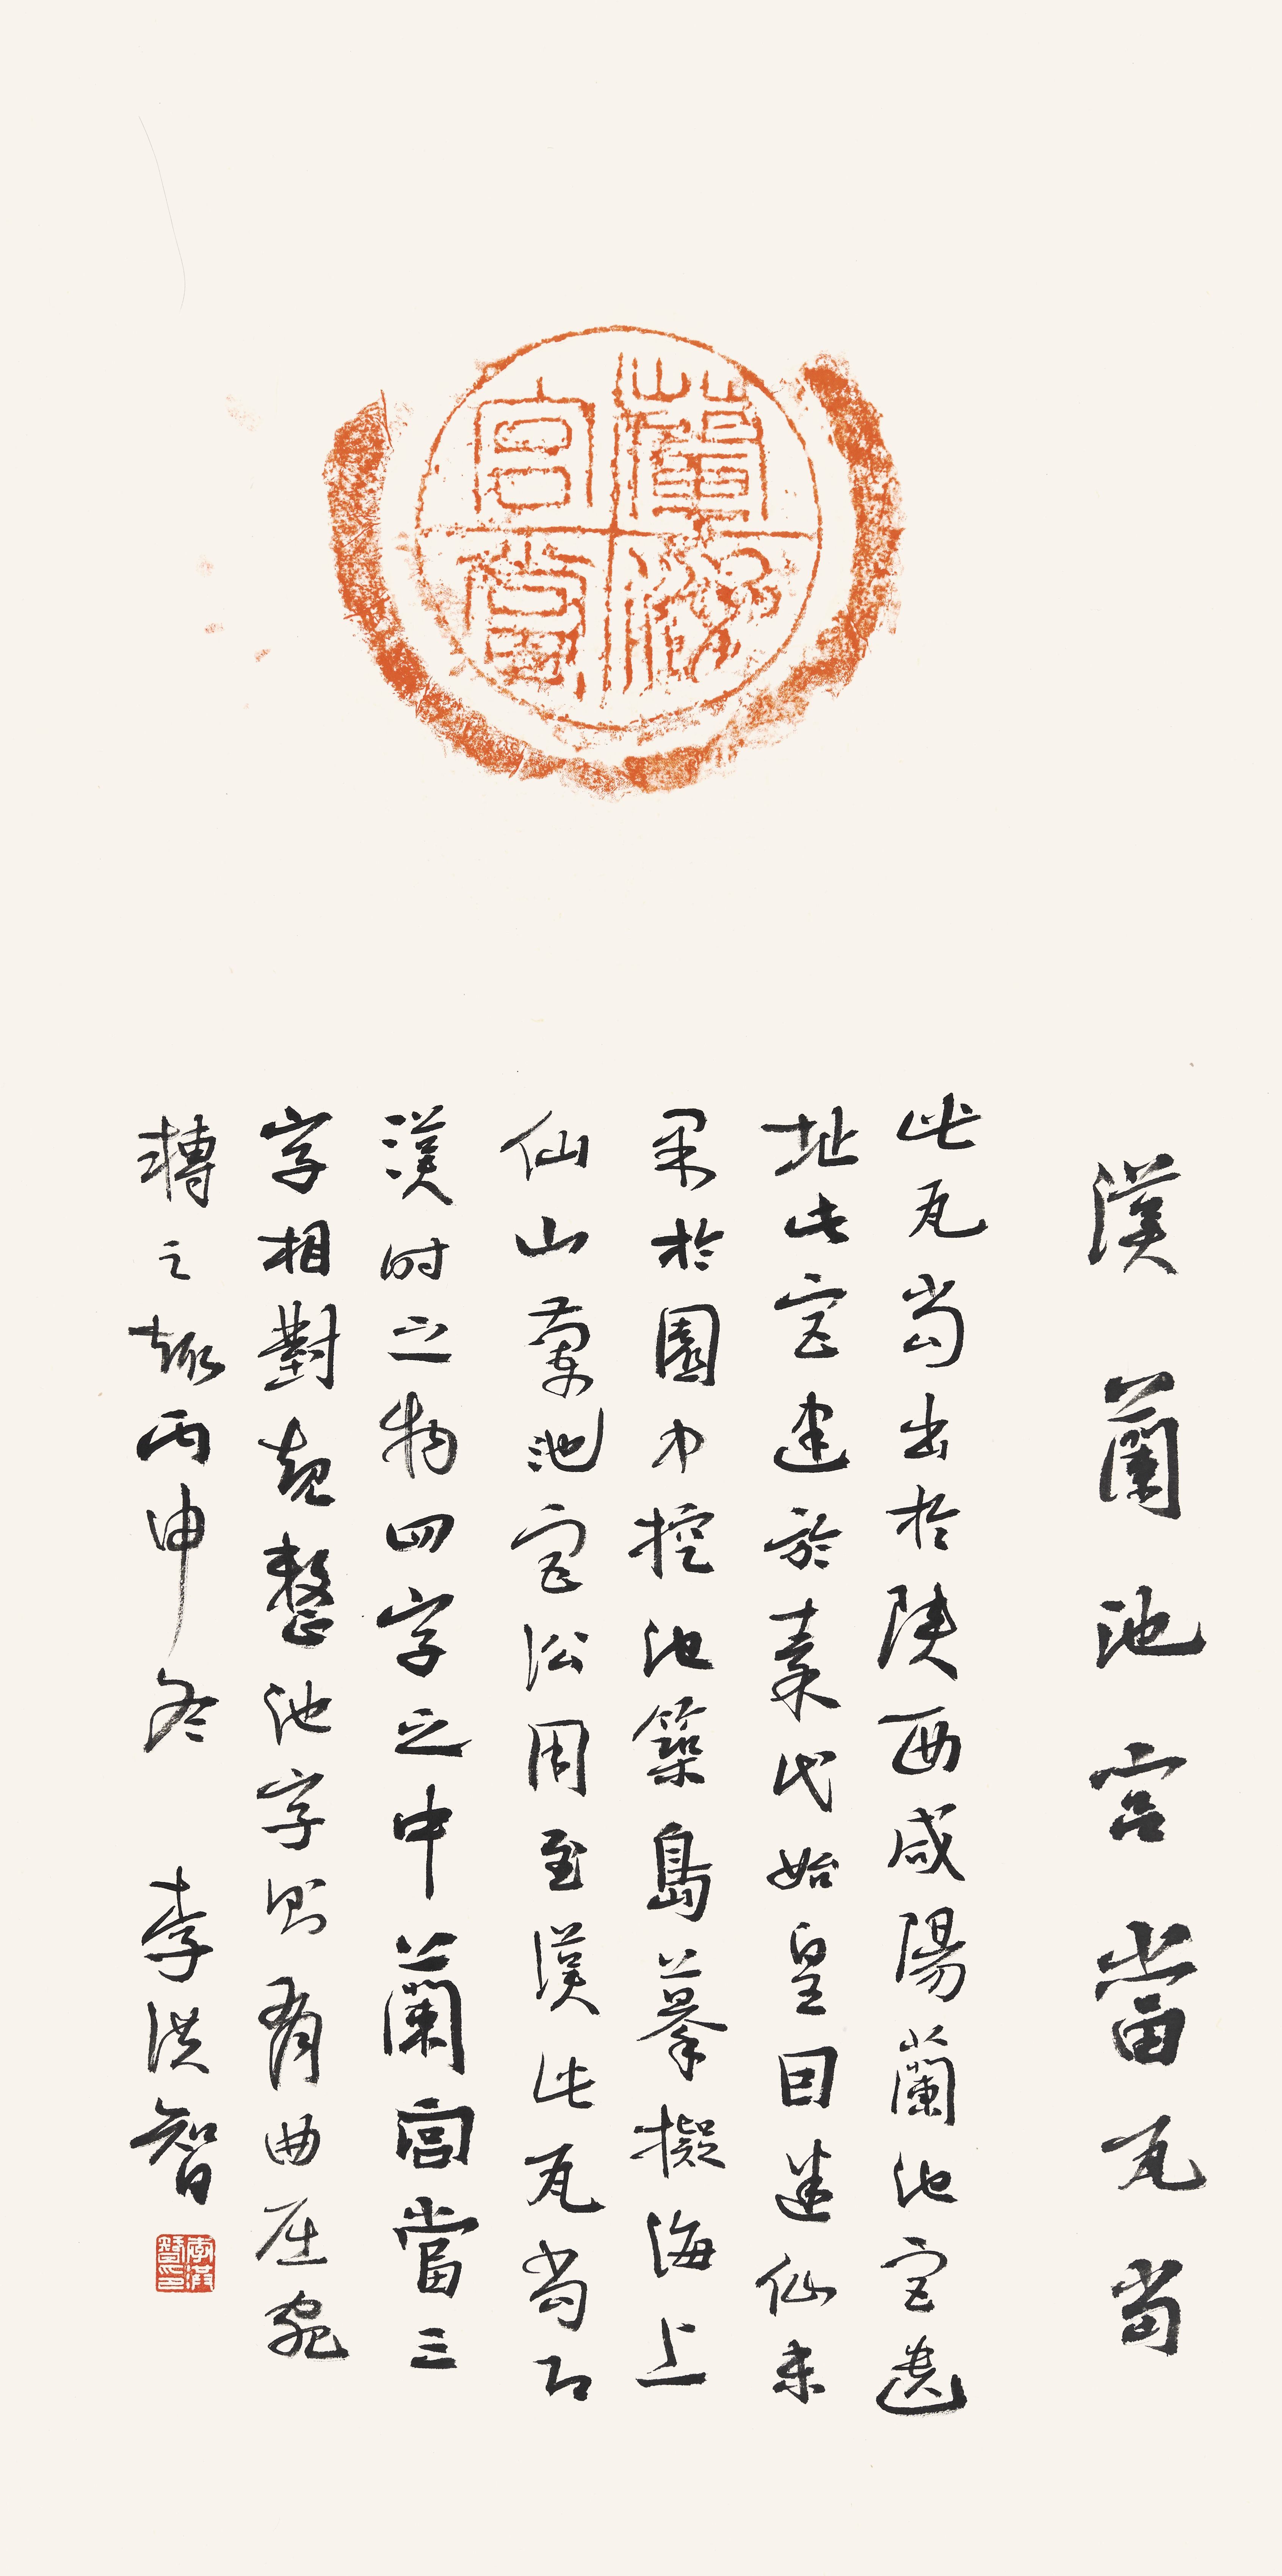 蘭池宮當
漢蘭池宮當瓦当
此瓦当出於陝西咸陽蘭池宮遺
址此宮建於秦代始皇因迷仙未
果於園中挖池築島摹擬海上
仙山蘭池宮沿用至漢此瓦当即
漢时之物四字之中蘭宮當三
字相對規整池字则有曲屈宛
轉之趣丙申冬 李洪智
李洪智印